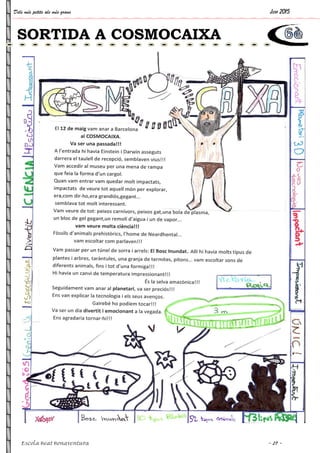 Dels més petits als més grans
Juny 2015
SORTIDA A COSMOCAIXA
COSMO CAIXA
El 12 de maig vam anar a Barcelona
al COSMOCAIXA.
Va ser una passada!!!
A l'entrada hi havia Einstein i Darwin asseguts
darrera el taulell de recepció, semblaven vius!!!
Vam accedir al museu per una mena de rampa
que feia la forma d'un cargol.
Quan vam entrar vam quedar molt impactats,
impactats de veure tot aquell món per explorar,
era,com dir-ho,era grandiós,gegant...
semblava tot molt interessant.
Vam veure de tot: peixos carnívors, peixos gat,una bola de plasma,
un bloc de gel gegant,un remolí d'aigua i un de vapor...
vam veure molta ciència!!!
Fòssils d'animals prehistòrics, l'home de Neardhental...
vam escoltar com parlaven!!!
Vam passar per un túnel de sorra i arrels: El Bosc Inundat. Allí hi havia molts tipus de
plantes i arbres, taràntules, una granja de termites, pitons... vam escoltar sons de
diferents animals, fins i tot d'una formiga!!!
Hi havia un canvi de temperatura impressionant!!!
És la selva amazònica!!!
Seguidament vam anar al planetari, va ser preciós!!!
Ens van explicar la tecnologia i els seus avenços.
Gairebé ho podíem tocar!!!
Va ser un dia divertit i emocionant a la vegada.
Ens agradaria tornar-hi!!!
Interessant
Història
CIÈNCIA
Divertit
Emocionant
Planetari 3D
Impactant
Impresionant
ÚNIC!
Important
Victòria
Règia
3 m
Bosc Inundat
52 tipus animals
Escola Beat Bonaventura
- 29 -